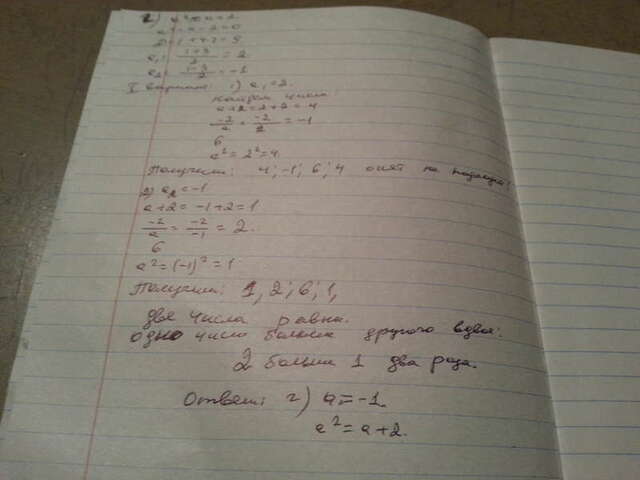 2) a²=a+2.
a²-a-2=0
D=1+4·2=9
a₁=(1+3)/2=2.
a₂=(1-3)/2=-1
I вариант: 1) a₁=2.
Находим числа:
a+2=2+2=4
-2/a=-2/2=-1
6
a²=2²=4.
Получим: 4; -1; 6; 4 опят не подходит!
2) a₂=-1
a+2=-1+2=1
-2/a=-2/-1=2.
6
a²=(-1)²=1
Получим: 1, 2; 6; 1,
две числа равна.
одно число больше другого вдвое:
2 больше 1 два раза.
Ответ: г) a=-1.
a²=a+2.